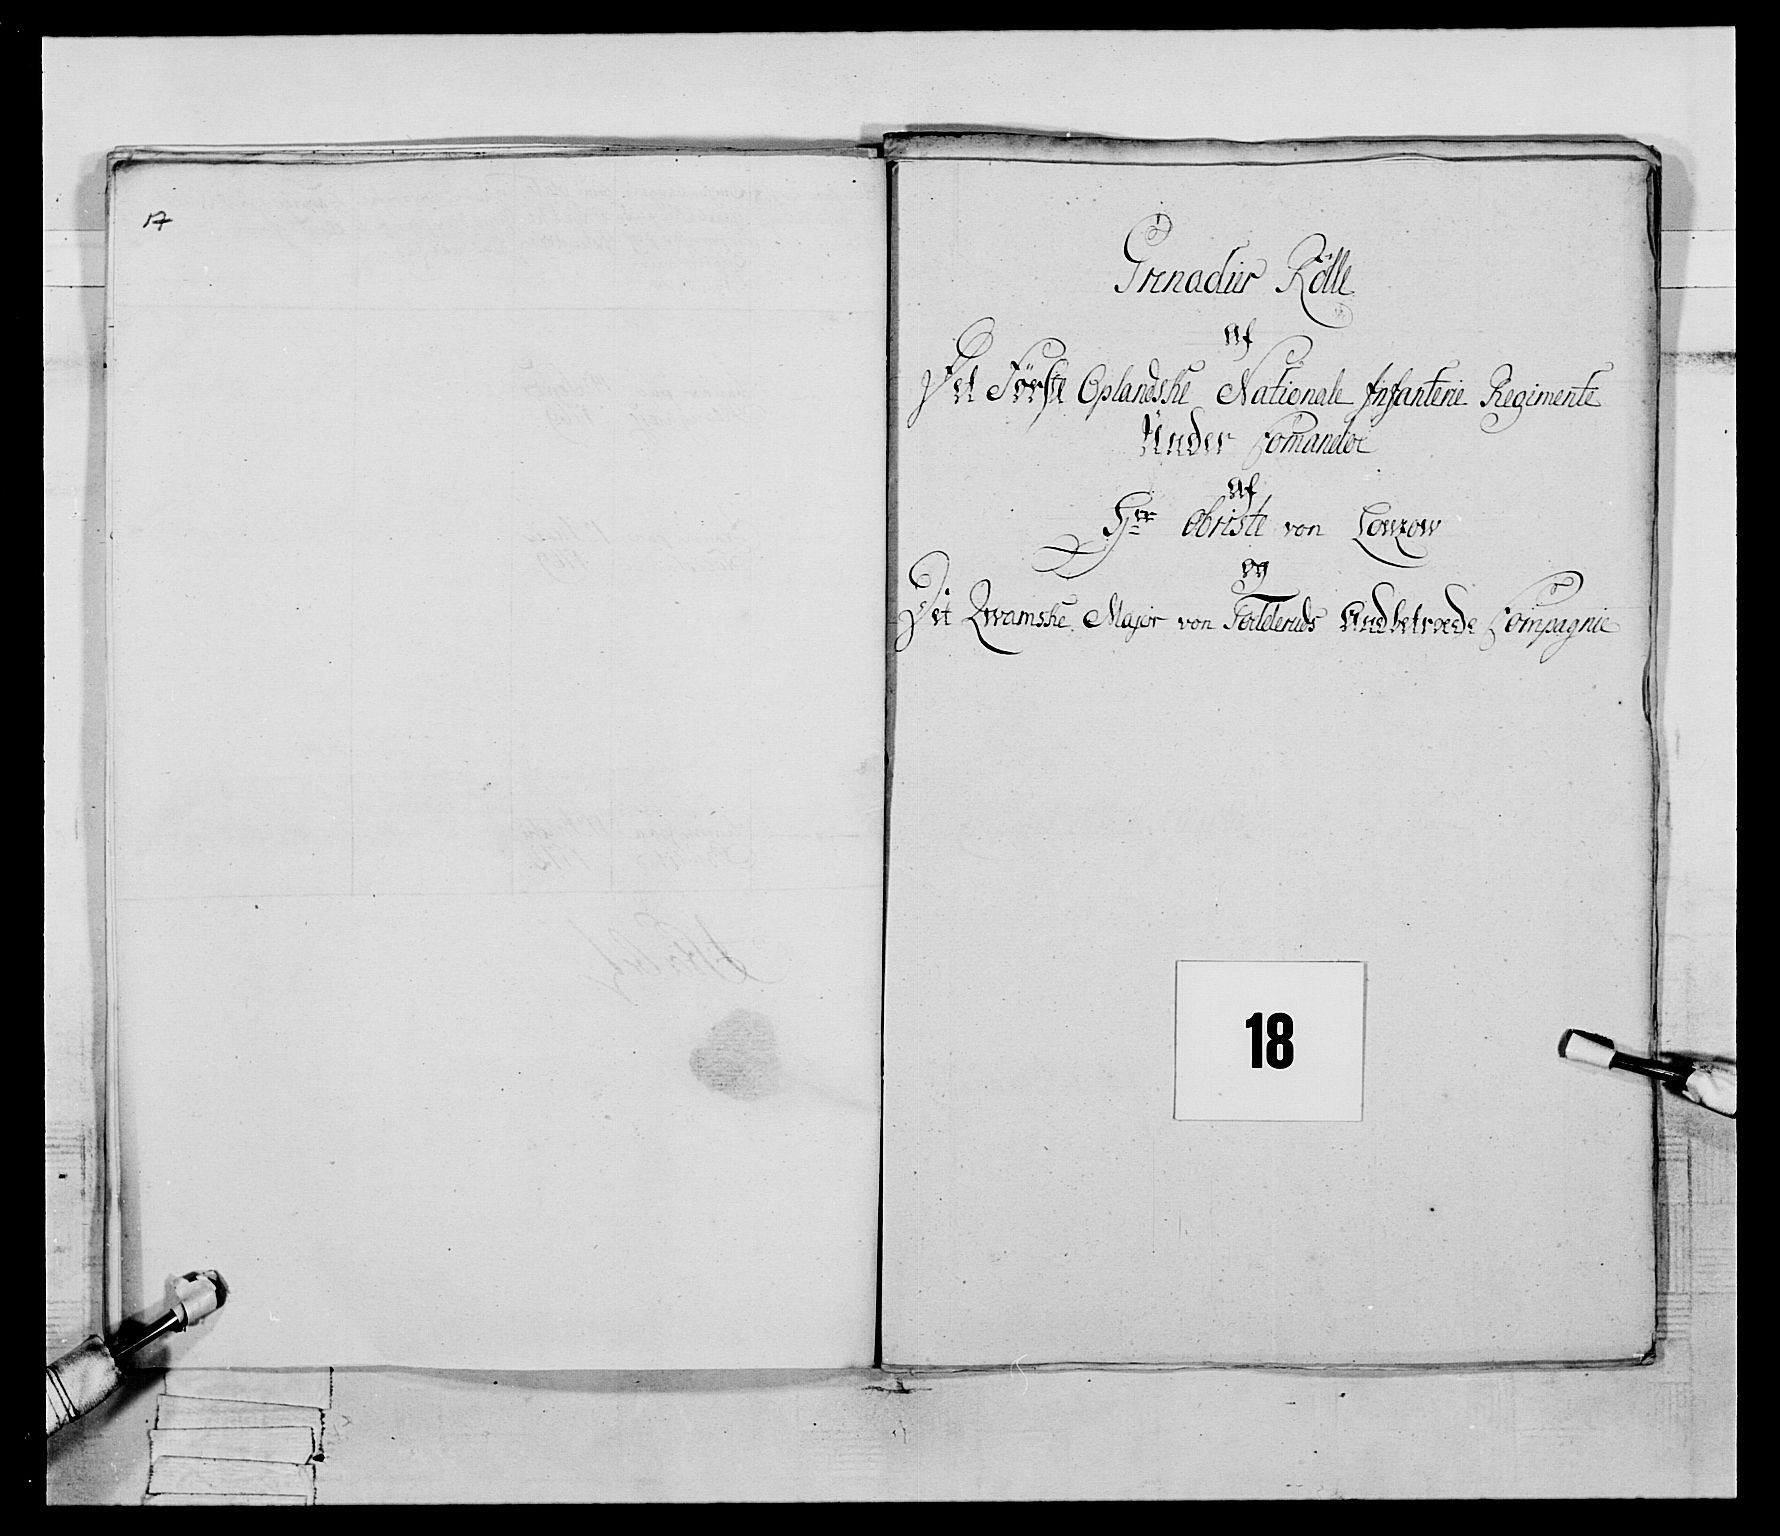 17
Grenadiir Rölle
Af
Det Første Oplandske Nationale Infanterie Regimente
Ünder Comandoe
Af
Hrr Obriste von Lowzow
og
Det Qvamske Major von Undbetroede Compagnie
18